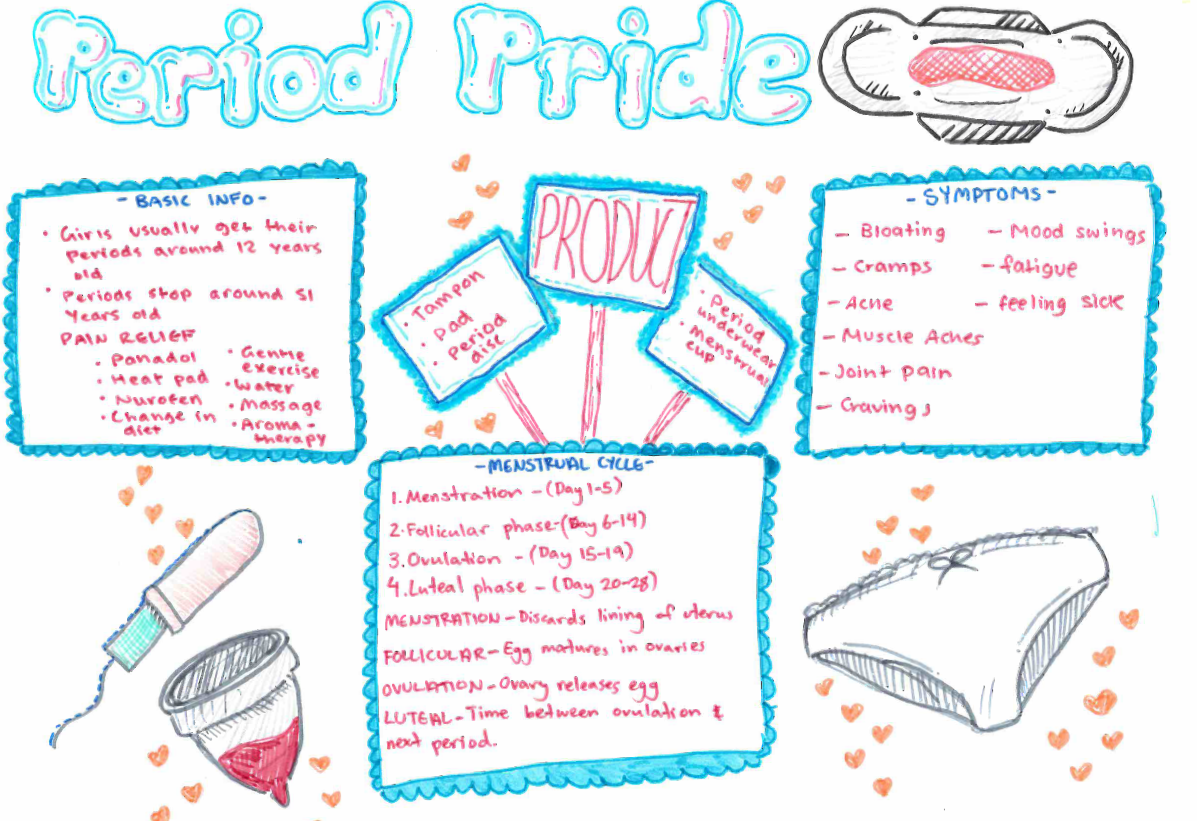 Period Pride
- BASIC INFO -
• Girls usually get their
periods around 12 years
old
• Periods stop around 51
years old
PAIN RELIEF
• Panadol
• Heat pad
• Nurofen
• Change in
diet
• Gentle
exercise
• Water
• Massage
• Aroma-
therapy
PRODUCT
• Tampon
• Pad
• Period
disc
• Period
underwear
• Menstrual
cup
- SYMPTOMS -
- Bloating
- Cramps
- Acne
- Muscle Aches
- Joint pain
- Cravings
- Mood swings
- fatigue
- feeling sick
- MENSTRUAL CYCLE -
1. Menstration - (Day 1-5)
2. Follicular phase - (Day 6-14)
3. Ovulation - (Day 15-19)
4. Luteal phase - (Day 20-28)
MENSTRATION - Discards lining of uterus
FOLLICULAR - Egg matures in ovaries
OVULATION - Ovary releases egg
LUTEAL - Time between ovulation &
next period.